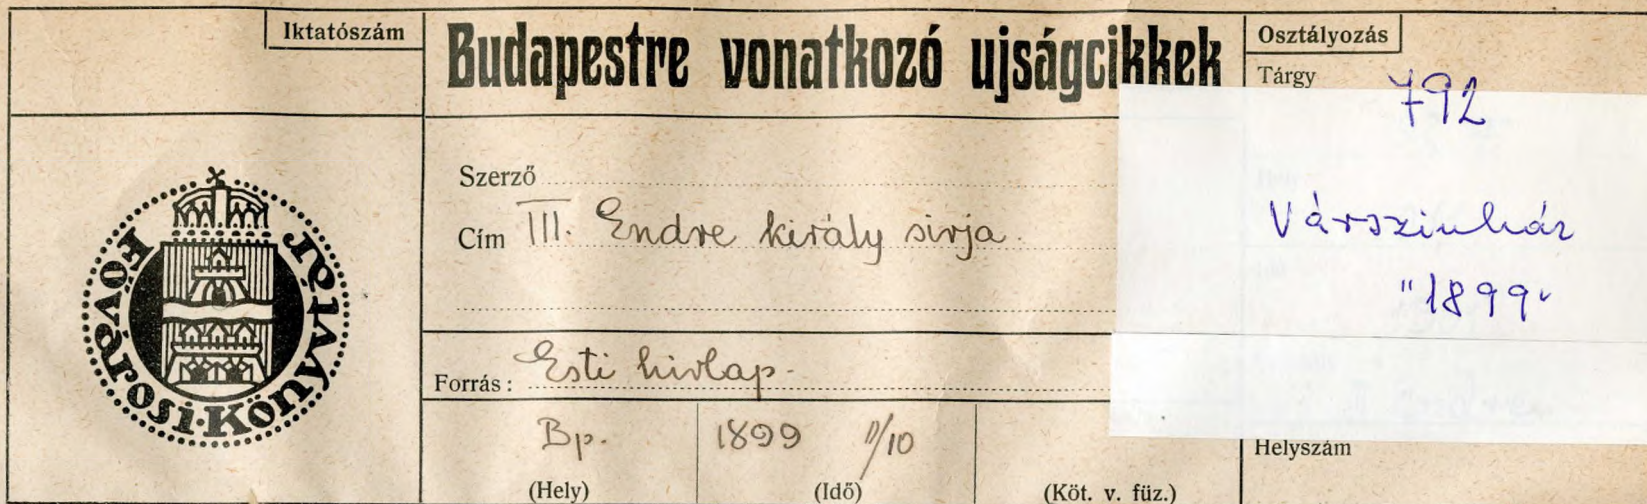 Iktatószám
Budapestre vonatkozó ujságcikkek
Osztályozás
Tárgy
792
Várszinház
"1899"
Fővárosi·Könyvtár
Szerző
Cím III. Endre király sirja.
Forrás: Esti hirlap.
Bp.
1899 II/10
(Hely)
(Idő)
(Köt. v. füz.)
Helyszám